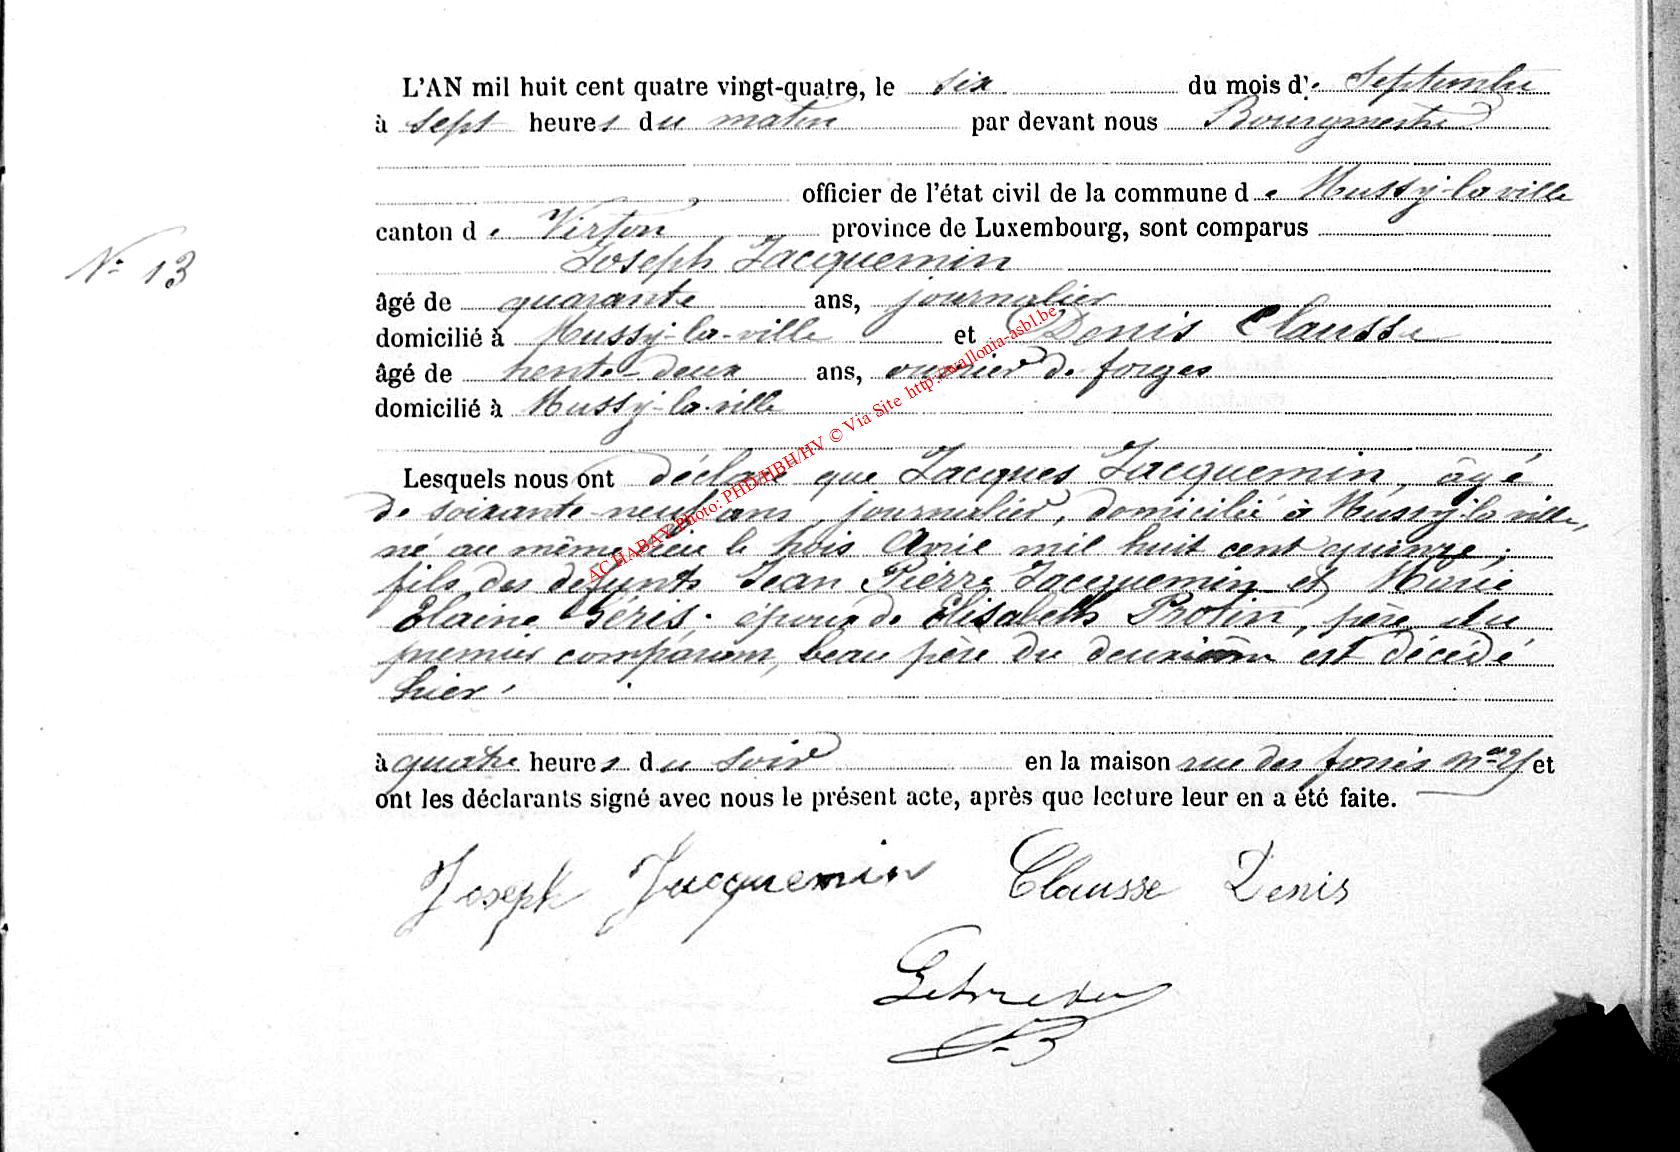 L'AN mil huit cent quatre vingt-quatre, le six du mois de Septembre
à sept heures du matin par devant nous Bourgmestre
officier de l'état civil de la commune de Mussy-la-ville
canton de Virton province de Luxembourg, sont comparus
N° 13
Joseph Jacquemin
âgé de quarante ans, journalier
domicilié à Mussy-la-ville et Denis Clausse
âgé de trente-deux ans, ouvrier de forges
domicilié à Mussy-la-ville
Lesquels nous ont déclaré que Jacques Jacquemin, âgé
de soixante-neuf ans, journalier, domicilié à Mussy-la-ville,
né au même lieu le trois Avril mil huit cent quinze,
fils des défunts Jean Pierre Jacquemin et Marie
Elaine Géris. époux de Elisabeth Protin, père du
premier comparant, beau père du deuxième est décédé
hier,
à quatre heures du soir en la maison rue des fossés et
ont les déclarants signé avec nous le présent acte, après que lecture leur en a été faite.
Joseph Jacquemin Clausse Denis
AC HABAY Photo: PHD/HBH/HV © Via Site http://wallonia-asbl.be